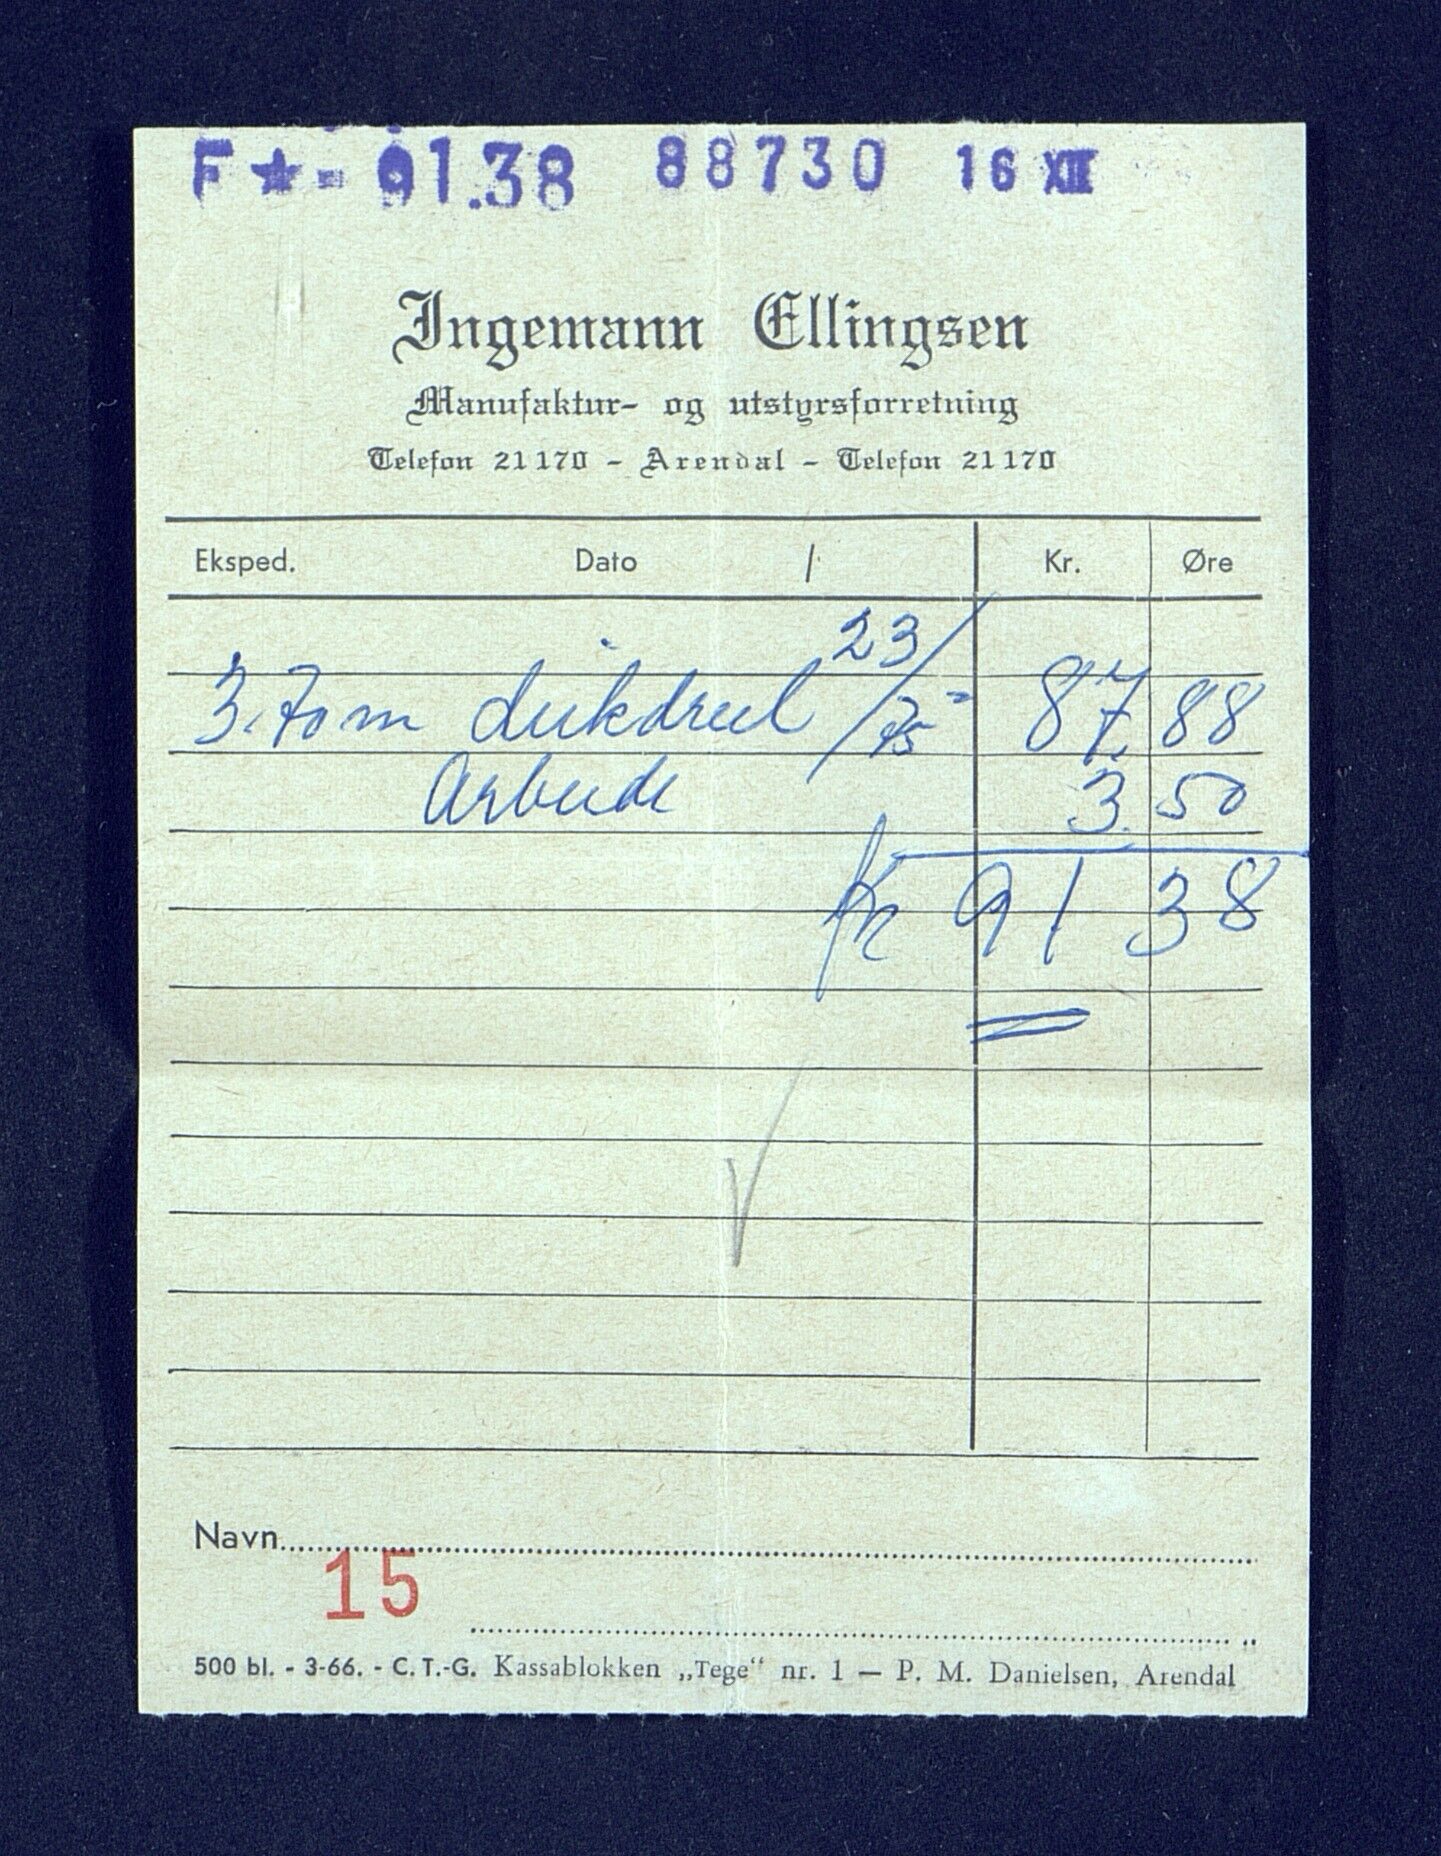 F ★ - 91.38 88730 16 XII
Ingemann Ellingsen
Manufaktur- og utstyrsforretning
Telefon 21170 - Arendal - Telefon 21170
Eksped. Dato / Kr. Øre
3.70 m dukdreil 23/75 87,88
Arbeide 3.50
Kr 91 38
Navn
15
500 bl. - 3-66. - C. T.-G. Kassablokken „Tege“ nr. 1 — P. M. Danielsen, Arendal